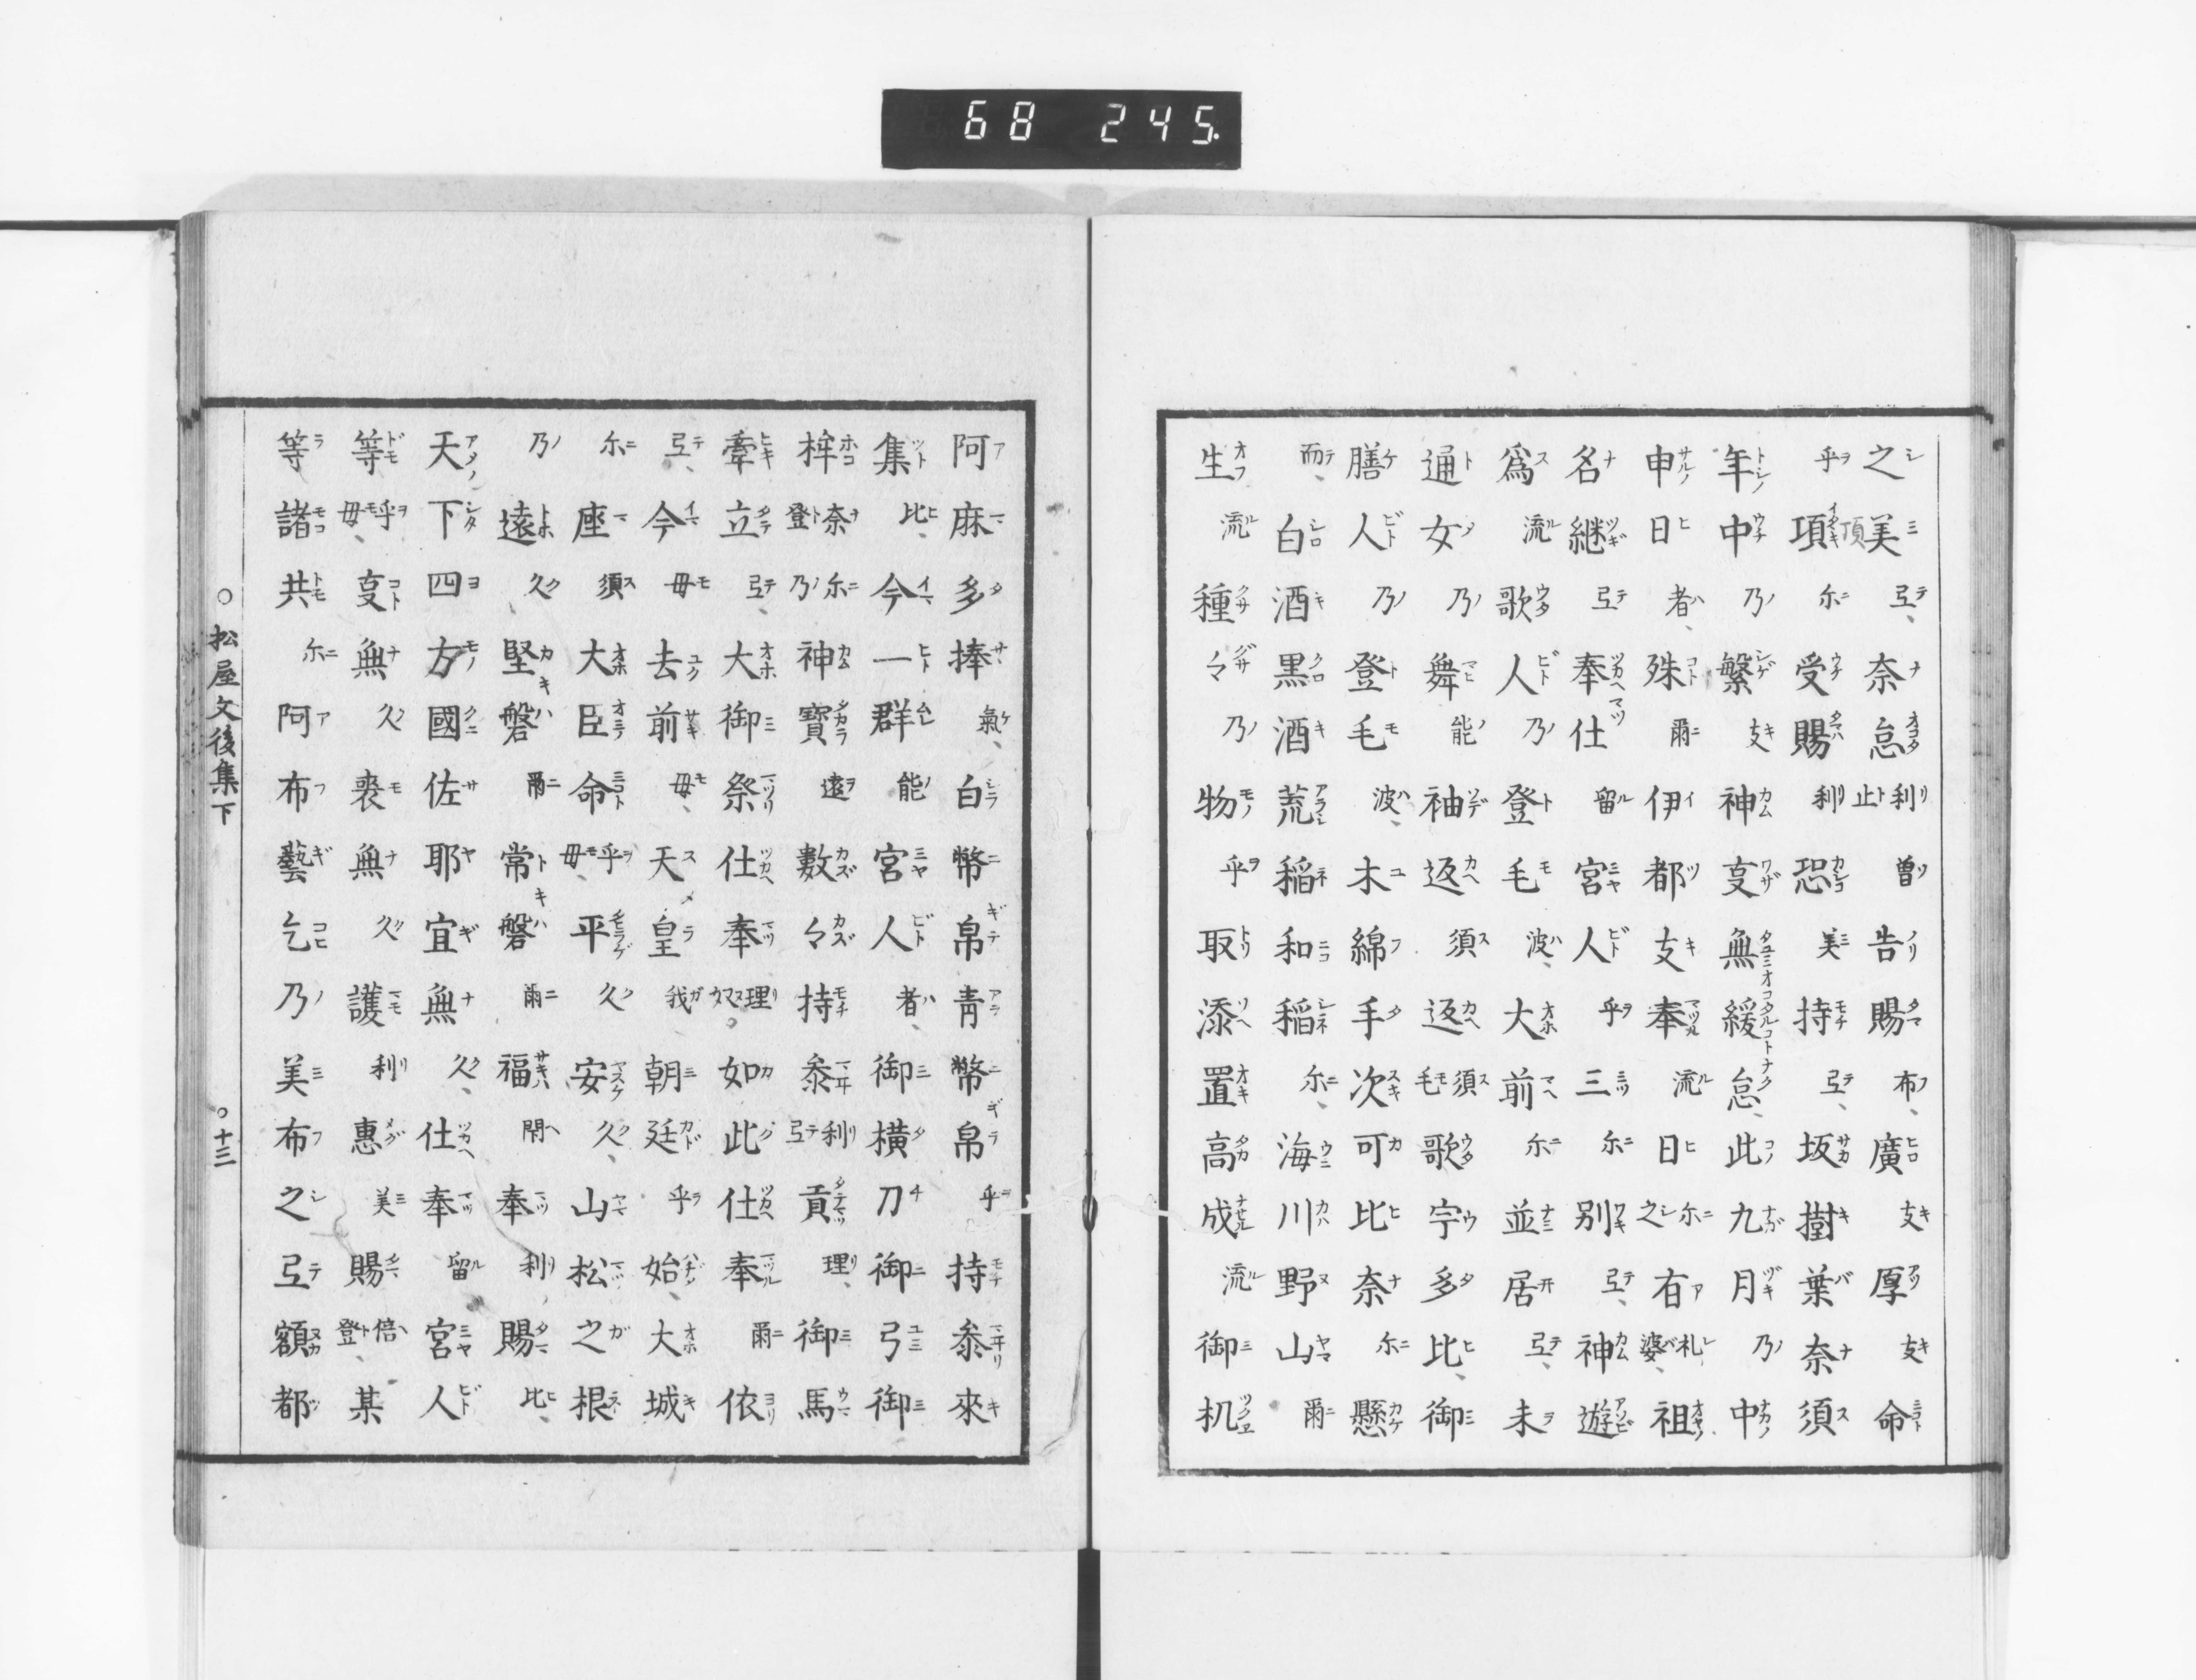 68 245.
之美弖、奈怠利止曽告賜布、廣支厚支命
乎項尓受賜利恐美持弖、坂樹葉奈須
頂
年中乃繁支神㕝無緩怠、此九月乃中
申日者、殊爾伊都支奉流日尓之有札婆祖
名継弖奉仕留宮人乎三尓別弖、神遊
為流歌人乃登毛波、大前尓並居弖、未
通女乃舞能袖返須返須毛歌宇多比、御
膳人乃登毛波、木綿手次可比奈尓懸
而、白酒黒酒荒稲和稲尓、海川野山爾
生流種々乃物乎取添置高成流御机
阿麻多捧氣、白幣帛青幣帛乎持参来
集比、今一群能宮人者、御横刀御弓御
桙登奈乃尓神寶遠數々持参弖利貢理、御馬
牽立弖、大御祭仕奉奴理。如此仕奉爾依
弖、今毋去前毋、天皇我朝廷乎始、大城
尓座須大臣命毋乎、平久安久、山松之根
乃遠久堅磐爾常磐爾福閇奉利賜比、
天下四方國佐耶宜無久、仕奉留宮人
等毋乎、㕝無久喪無久護利惠美賜登倍、某
等諸共尓阿布藝乞乃美布之弖額都
○松屋文後集下
○十三